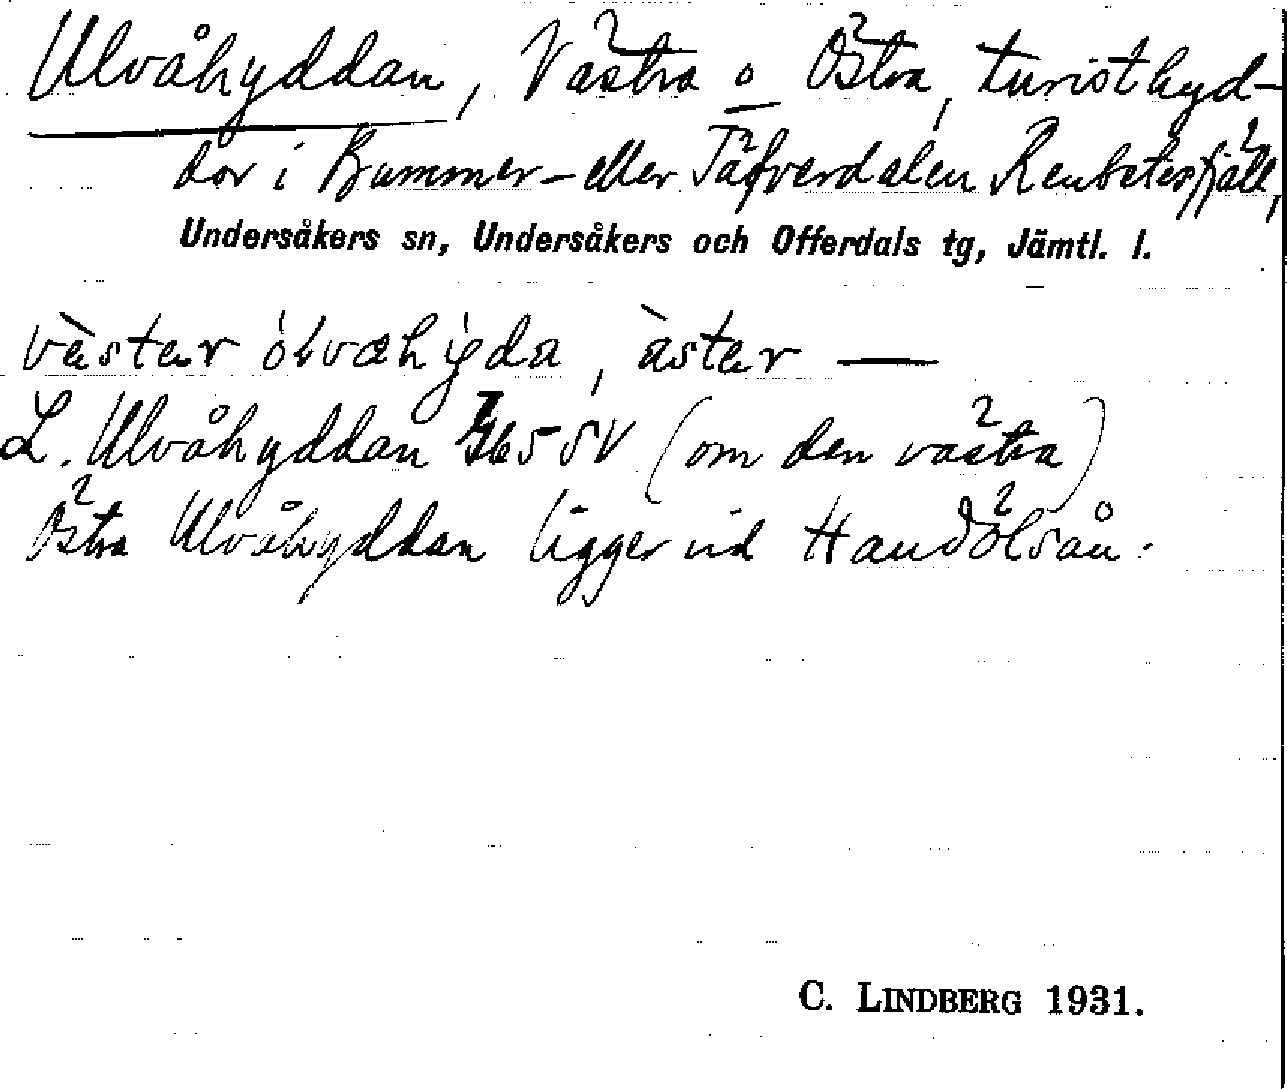 Ulvåhyddan, Västra o Östra, turisthyd-
dor i Bummer- eller Täfverdalen Renbetesfjäll,
Undersåkers sn, Undersåkers och Offerdals tg, Jämtl. l.
L. Ulvåhyddan 765 SV (om den västra)
Östra Ulvåhyddan ligger vid Handölsån.
C. LINDBERG 1931.